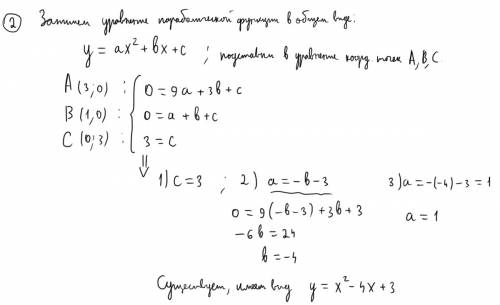 ② Запишем уравнение параболической функции в общем виде:
y = ax² + bx + c ; подставим в уравнение коорд. точек A, B, C
A (3;0) : { 0 = 9a + 3b + c
B (1;0) : 0 = a + b + c
C (0;3) : 3 = c
⇓
1) c = 3 ; 2) a = -b - 3 3) a = -(-4) - 3 = 1
0 = 9(-b-3) + 3b + 3 a = 1
-6b = 24
b = -4
Существует, имеет вид y = x² - 4x + 3